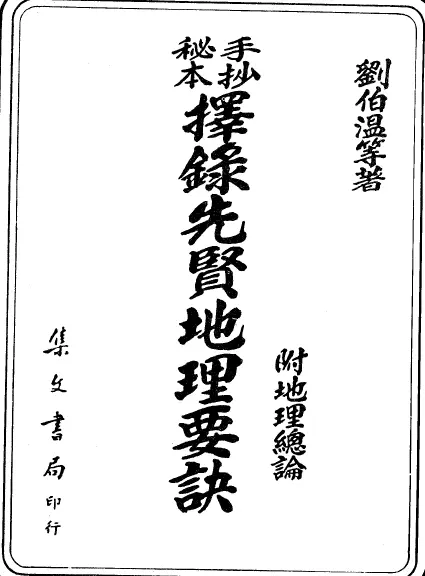 劉伯溫等著
手抄
秘本
擇錄先賢地理要訣
附地理總論
集文書局印行